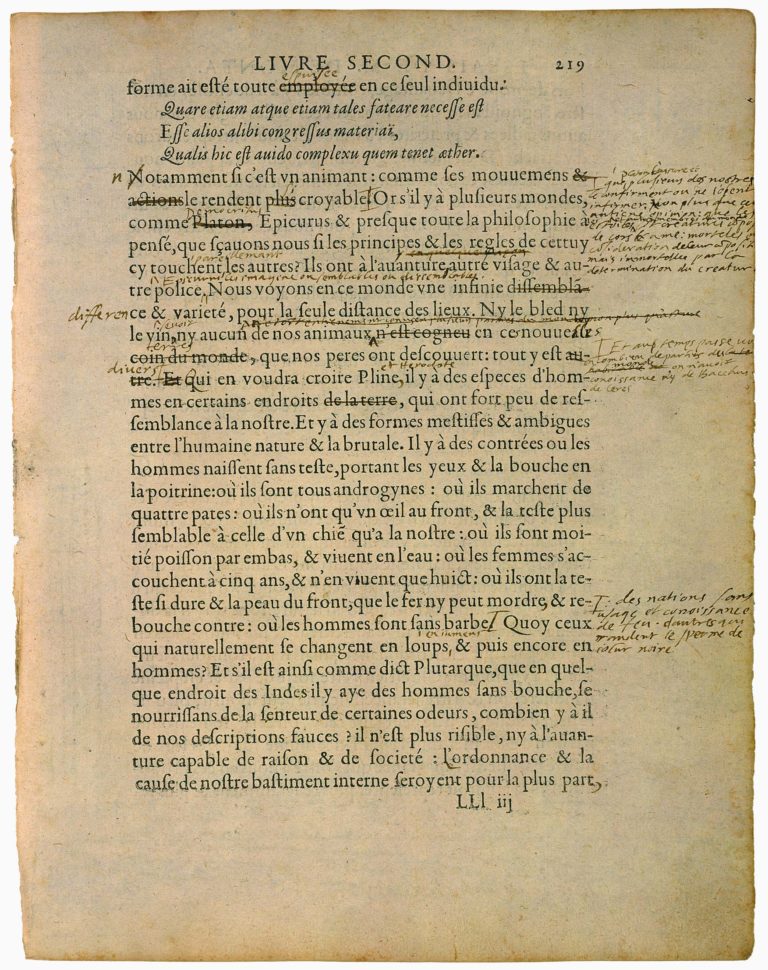 LIVRE SECOND. 219
espuisée
forme ait esté toute employée en ce seul indiuidu:
Quare etiam atque etiam tales fateare necesse est
Esse alios alibi congressus materiaï,
Qualis hic est auido complexu quem tenet æther.
n Notamment si c'est vn animant: comme ses mouuemens &
actions le rendent plus croyable Or s'il y à plusieurs mondes,
Democritus,
comme Platon, Epicurus & presque toute la philosophie à
pensé, que sçauons nous si les principes & les regles de cettuy
cy touchent les autres? Ils ont à l'auanture autre visage & au-
tre police. Nous voyons en ce monde vne infinie dissembla-
difference
ce & varieté, pour la seule distance des lieux. Ny le bled ny
le vin, ny aucun de nos animaux n'est cogneu en ce nouueau
terres
coin du monde, que nos peres ont descouuert: tout y est au-
divers
et Herodote
tre. Et Qui en voudra croire Pline, il y à des especes d'hom-
mes en certains endroits de la terre, qui ont fort peu de res-
semblance à la nostre. Et y à des formes mestisses & ambigues
entre l'humaine nature & la brutale. Il y à des contrées ou les
hommes naissent sans teste, portant les yeux & la bouche en
la poitrine: où ils sont tous androgynes: où ils marchent de
quattre pates: où ils n'ont qu'vn œil au front, & la teste plus
semblable à celle d'vn chiē qu'a la nostre: où ils sont moi-
tié poisson par embas, & viuent en l'eau: où les femmes s'ac-
couchent à cinq ans, & n'en viuent que huict: où ils ont la te-
ste si dure & la peau du front, que le fer ny peut mordre, & re-
bouche contre: où les hommes sont sans barbe Quoy ceux
des nations sans
usage et conoissance
de feu. d'autres qui
randent le sperme de
colur noire
en iumens
qui naturellement se changent en loups, & puis encore en
hommes? Et s'il est ainsi comme dict Plutarque, que en quel-
que endroit des Indes il y aye des hommes sans bouche, se
nourrissans de la senteur de certaines odeurs, combien y à il
de nos descriptions fauces? il n'est plus risible, ny à l'auan-
ture capable de raison & de societé: L'ordonnance & la
cause de nostre bastiment interne seroyent pour la plus part,
LLl iij